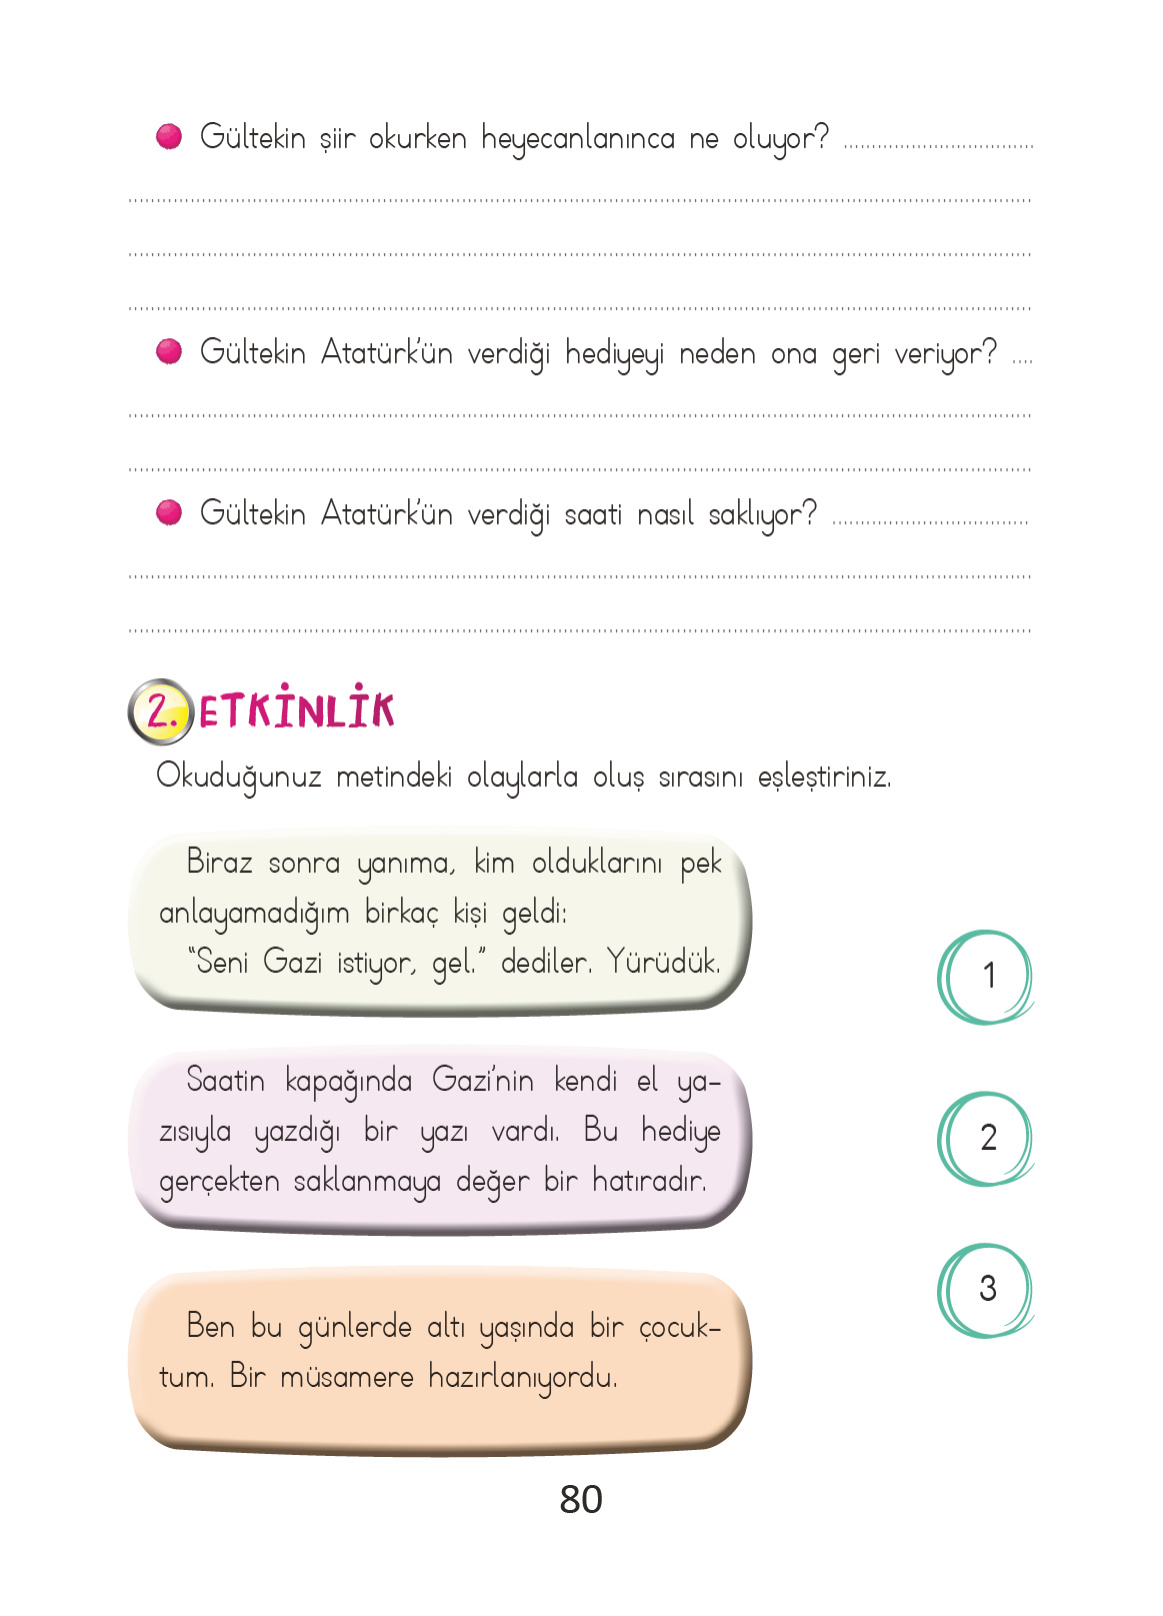 Gültekin şiir okurken heyecanlanınca ne oluyor? ..................................
Gültekin Atatürk’ün verdiği hediyeyi neden ona geri veriyor? ....
Gültekin Atatürk’ün verdiği saati nasıl saklıyor? ..................................
2. ETKİNLİK
Okuduğunuz metindeki olaylarla oluş sırasını eşleştiriniz.
Biraz sonra yanıma, kim olduklarını pek
anlayamadığım birkaç kişi geldi:
“Seni Gazi istiyor, gel.” dediler. Yürüdük.
1
Saatin kapağında Gazi’nin kendi el ya-
zısıyla yazdığı bir yazı vardı. Bu hediye
gerçekten saklanmaya değer bir hatıradır.
2
3
Ben bu günlerde altı yaşında bir çocuk-
tum. Bir müsamere hazırlanıyordu.
80